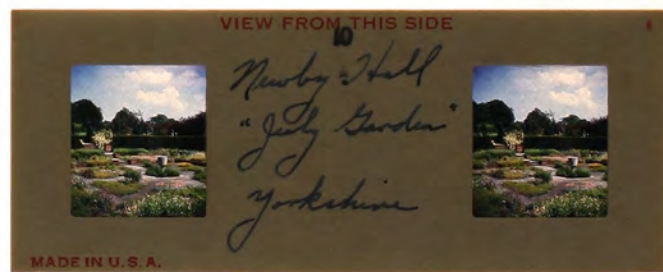 VIEW FROM THIS SIDE
10
Newby Hall
"July Garden"
Yorkshire
MADE IN U.S.A.